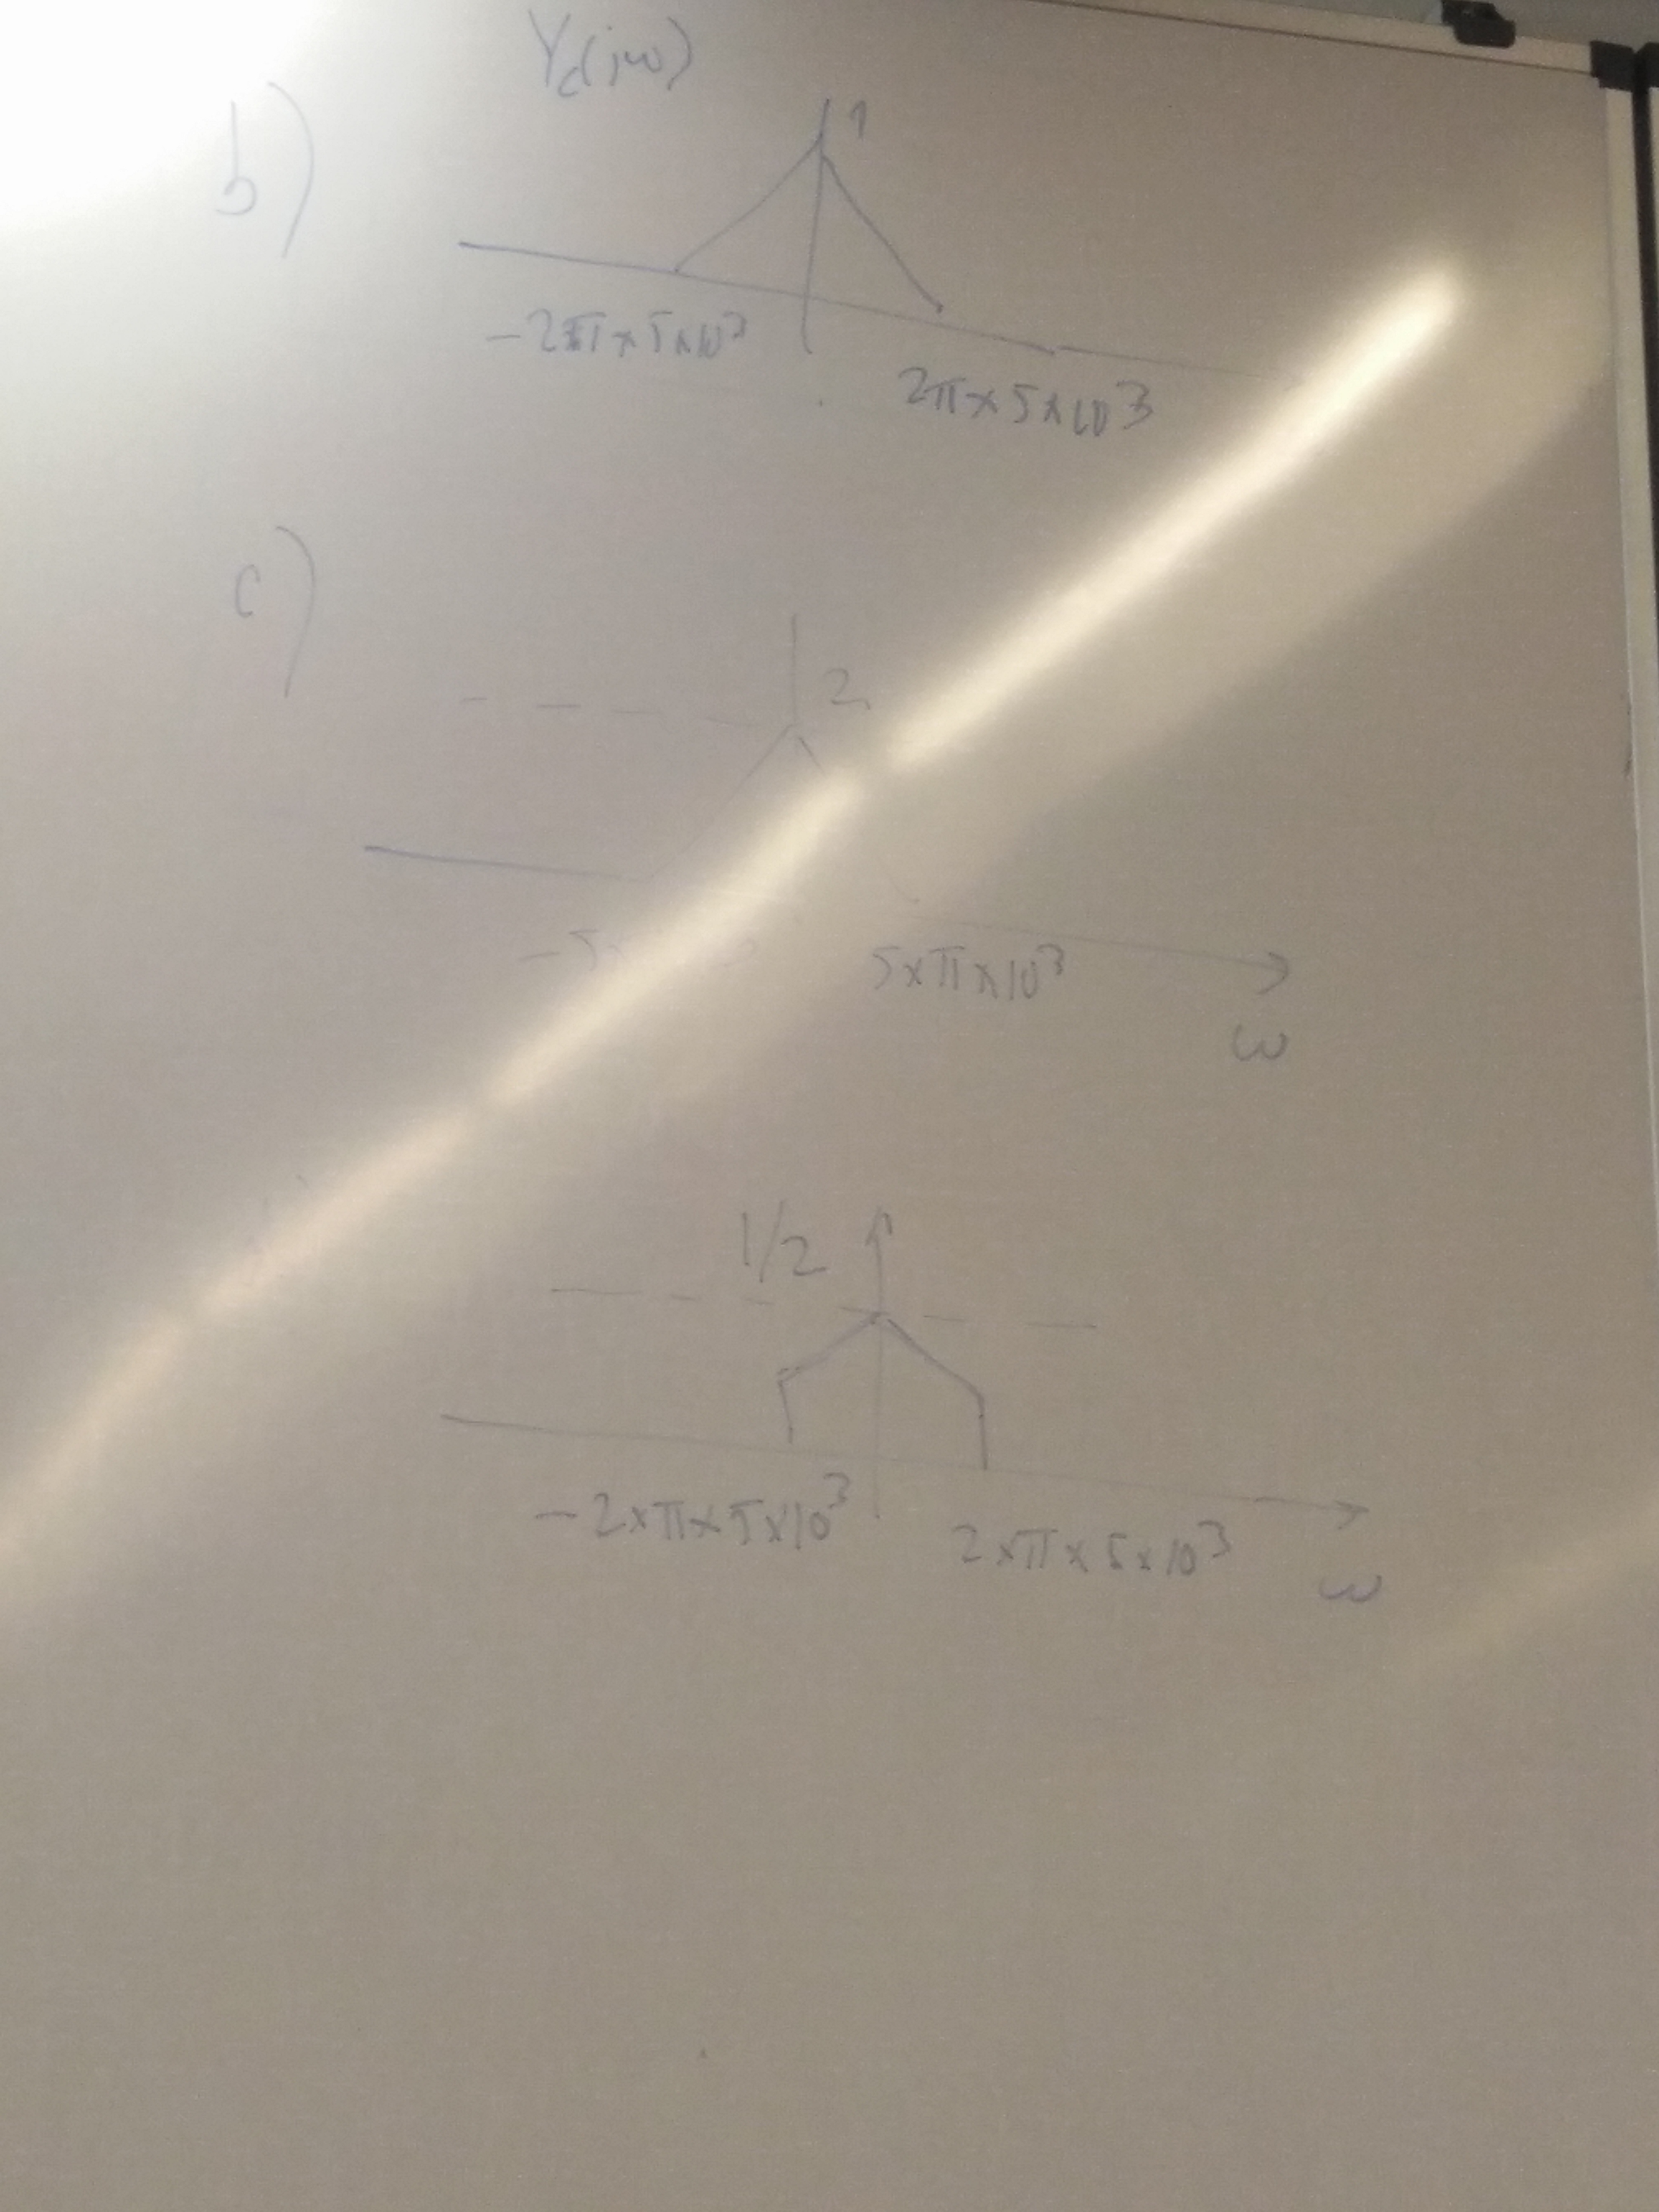 Yc(jω)
b)
1
-2π×5×10³
2π×5×10³
c)
2
-5
5×π×10³
ω
1/2
-2×π×5×10³
2×π×5×10³
ω